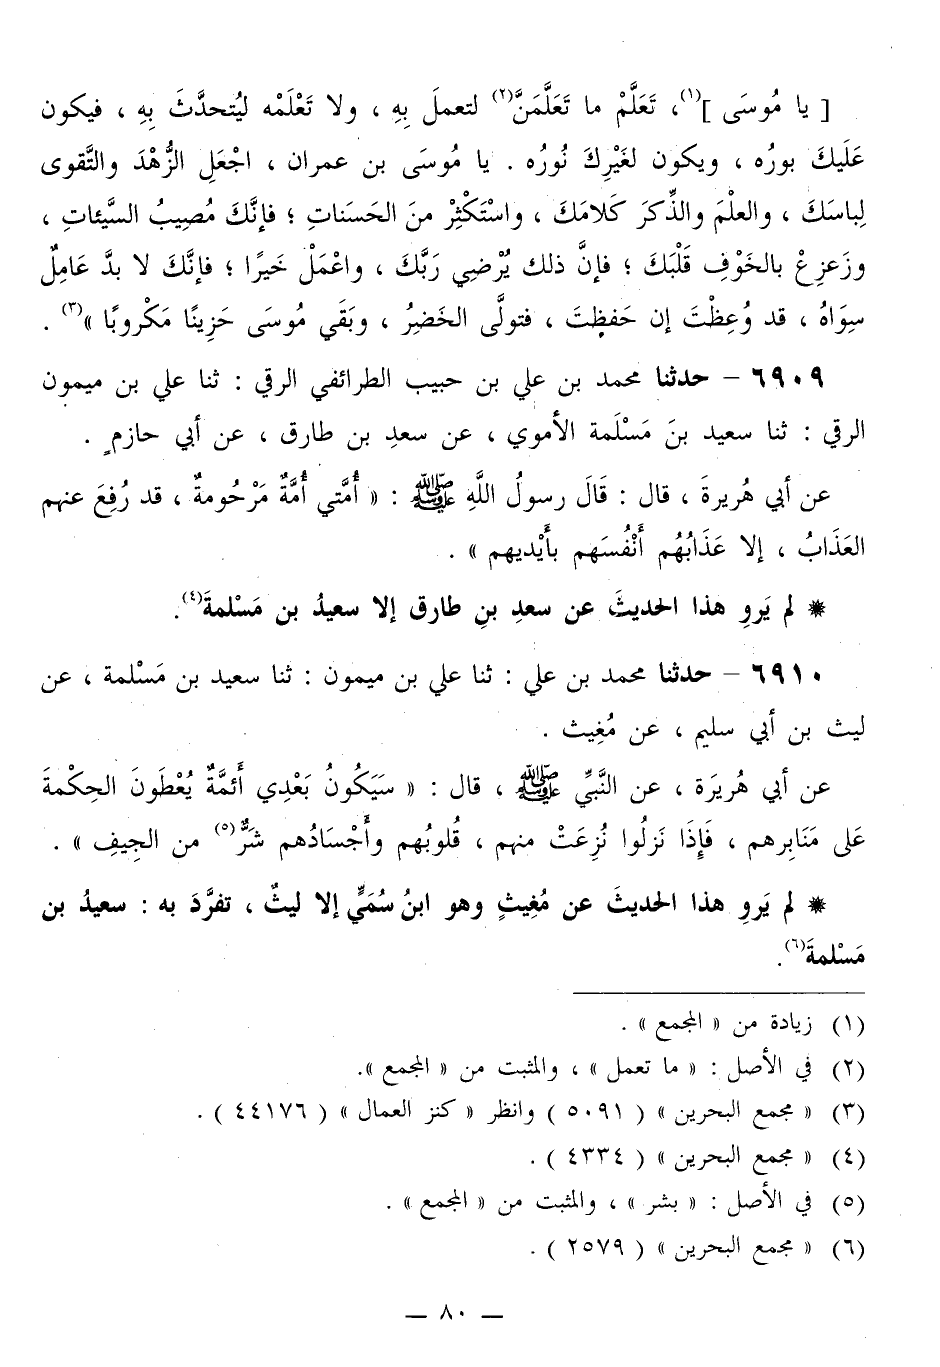 [ يا مُوسَى ]<sup>(١)</sup>، تَعَلَّمْ ما تَعَلَّمَنَّ<sup>(٢)</sup> لتعملَ بِهِ ، ولا تَعْلَمْه ليُتحدَّثَ بِهِ ، فيكون
عَلَيكَ بورُه ، ويكون لغَيْرِكَ نُورُه . يا مُوسَى بن عمران ، اجْعَلِ الزُّهْدَ والتَّقوى
لِباسَكَ ، والعلْمَ والذِّكرَ كَلامَكَ ، واسْتَكْثِرْ منَ الحَسَناتِ ؛ فإنَّكَ مُصِيبُ السَّيئاتِ ،
وزَعزِعْ بالخَوْفِ قَلْبَكَ ؛ فإنَّ ذلك يُرْضِي رَبَّكَ ، واعْمَلْ خَيرًا ؛ فإنَّكَ لا بدَّ عَامِلٌ
سِوَاهُ ، قد وُعِظْتَ إن حَفظِتَ ، فتولَّى الخَضِرُ ، وبَقَي مُوسَى حَزِينًا مَكْروبًا »<sup>(٣)</sup> .
٦٩٠٩ – حدثنا محمد بن علي بن حبيب الطرائفي الرقي : ثنا علي بن ميمون
الرقي : ثنا سعيد بنَ مَسْلَمة الأموي ، عن سعدِ بن طارق ، عن أبي حازمٍ .
عن أبي هُريرةَ ، قال : قَالَ رسولُ اللَّهِ ﷺ : « أُمَّتي أُمَّةٌ مَرْحُومةٌ ، قد رُفِعَ عنهم
العَذَابُ ، إلا عَذَابُهُم أَنْفُسَهم بأَيْديهم » .
* لم يَروِ هذا الحديثَ عن سعدِ بنِ طارق إلا سعيدُ بن مَسْلمةَ<sup>(٤)</sup>.
٦٩١٠ – حدثنا محمد بن علي : ثنا علي بن ميمون : ثنا سعيد بن مَسْلمة ، عن
ليث بن أبي سليم ، عن مُغِيث .
عن أبي هُريَرة ، عن النَّبيِّ ﷺ ، قال : « سَيَكُونُ بَعْدِي أَئمَّةٌ يُعْطَونَ الحِكْمةَ
عَلى مَنَابِرهم ، فَإِذَا نَزلُوا نُزِعَتْ منهم ، قُلوبُهم وأَجْسَادُهم شَرٌّ<sup>(٥)</sup> من الجِيفِ » .
* لم يَروِ هذا الحديثَ عن مُغِيثٍ وهو ابنُ سُمَيٍّ إلا ليثٌ ، تفرَّدَ به : سعيدُ بن
مَسْلمةَ<sup>(٦)</sup>.
(١) زيادة من « المجمع » .
(٢) في الأصل : « ما تعمل » ، والمثبت من « المجمع ».
(٣) « مجمع البحرين » ( ٥٠٩١ ) وانظر « كنز العمال » ( ٤٤١٧٦ ) .
(٤) « مجمع البحرين » ( ٤٣٣٤ ) .
(٥) في الأصل : « بشر » ، والمثبت من « المجمع » .
(٦) « مجمع البحرين » ( ٢٥٧٩ ) .
— ٨٠ —